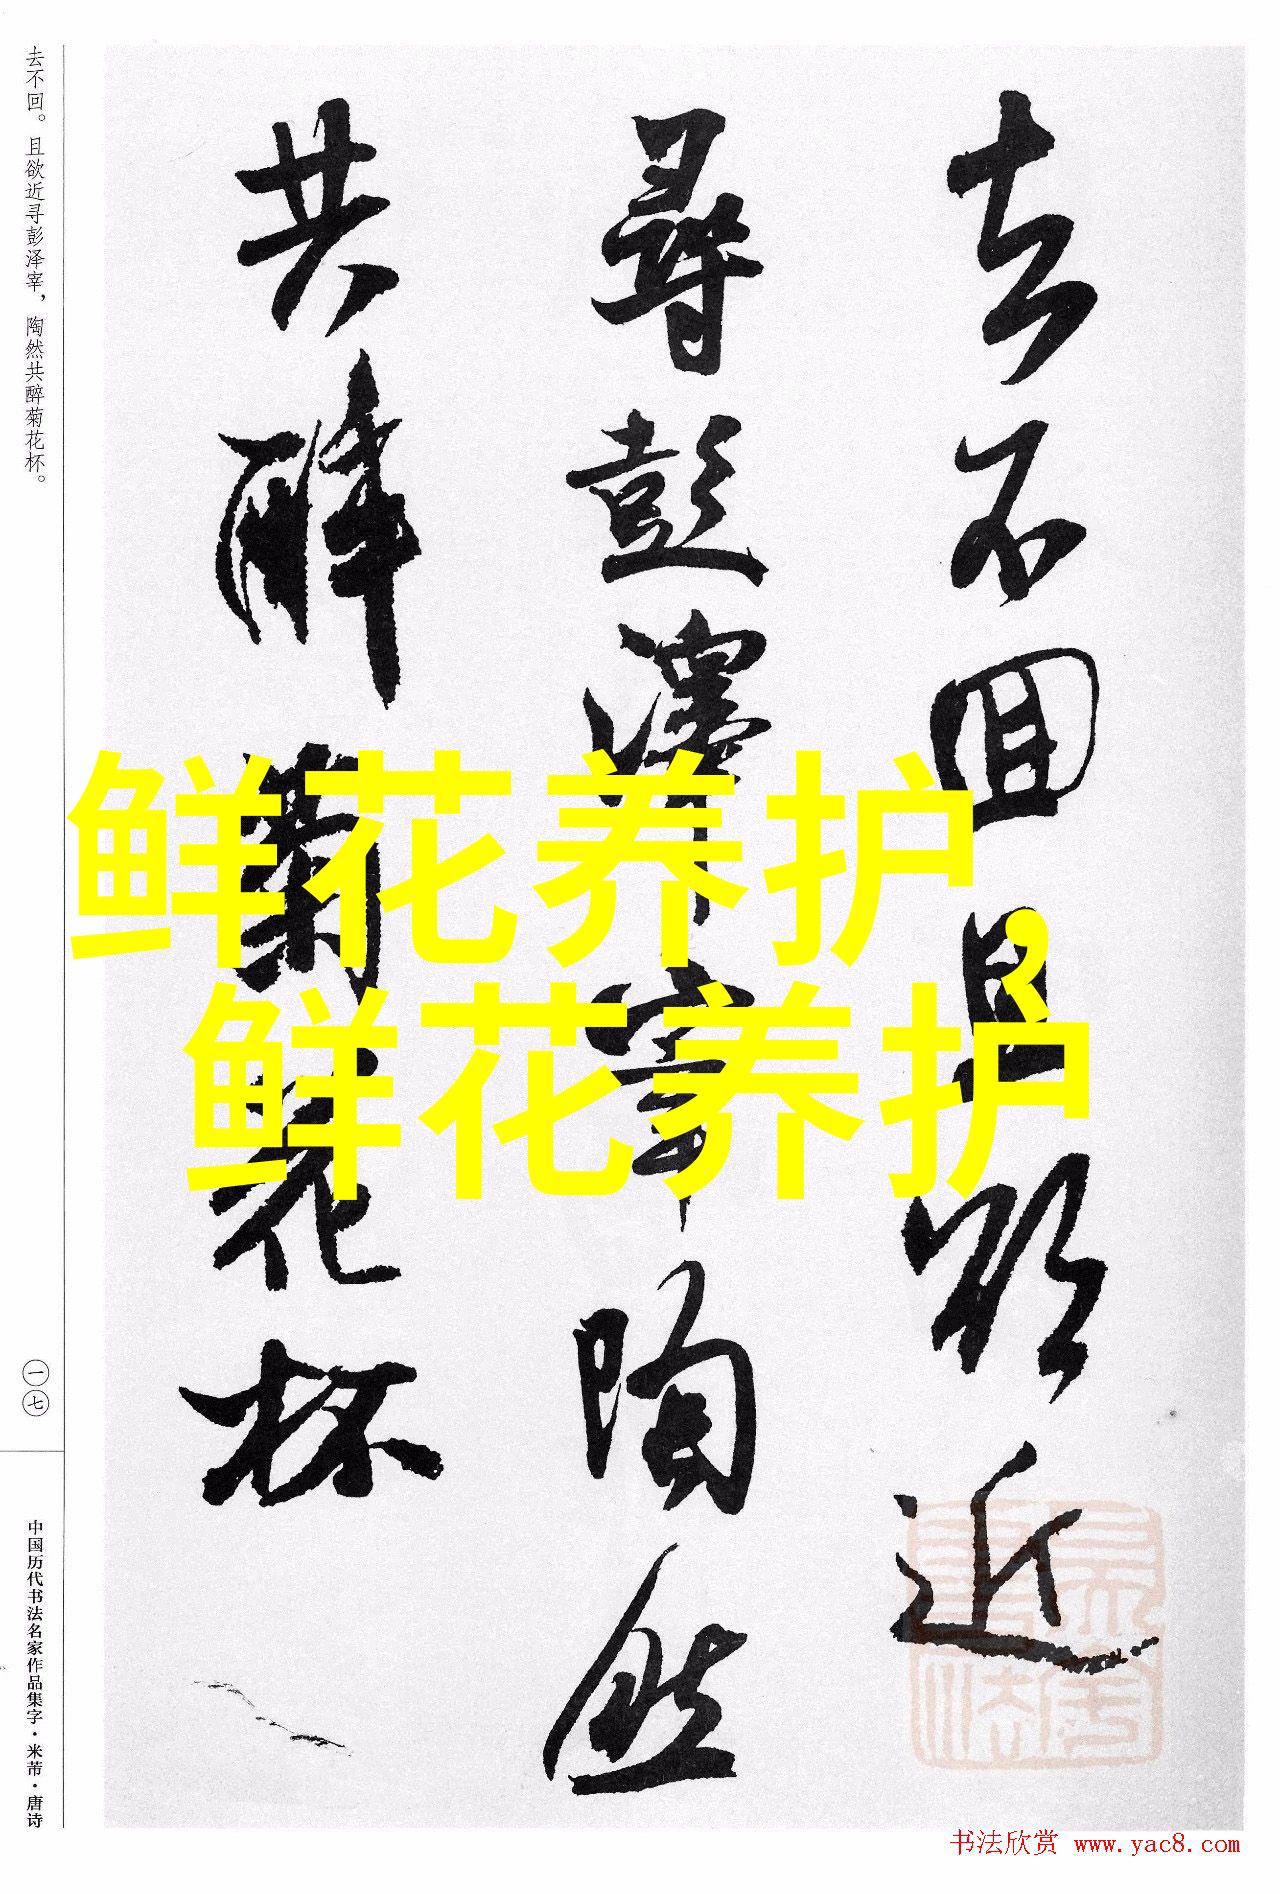 去不回且欲近
尋彭澤宰陶然
共醉菊花杯
去不回。且欲近寻彭泽宰，陶然共醉菊花杯。
一七
中国历代书法名家作品集字·米芾·唐诗
鲜花养护，
鲜花养护
书法欣赏 www.yac8.com